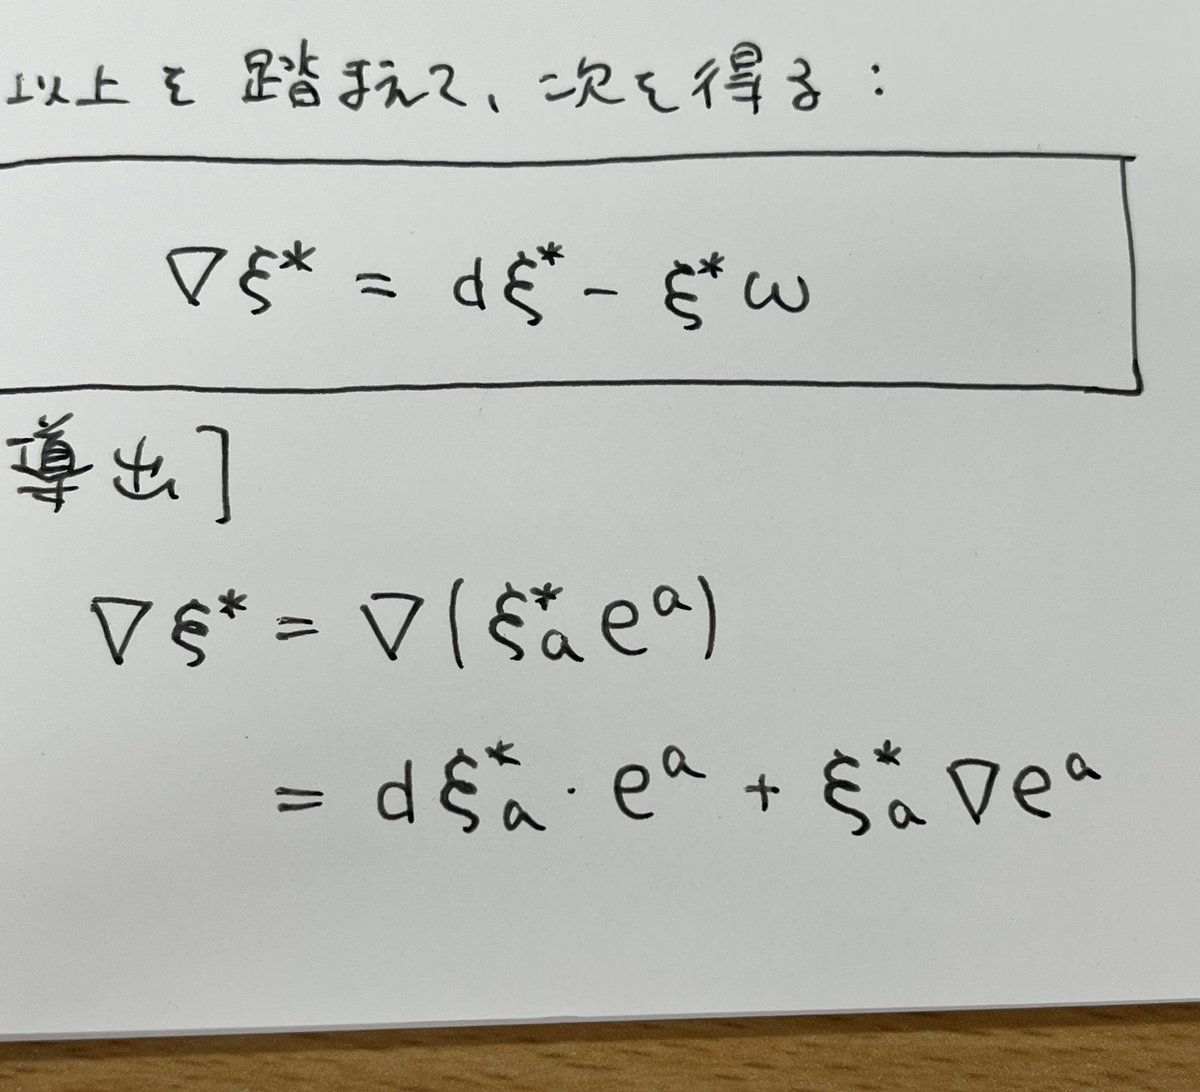 以上を踏まえて、次を得る:
∇ξ* = dξ* - ξ*ω
導出]
∇ξ* = ∇(ξ*ₐ eᵃ)
= dξ*ₐ · eᵃ + ξ*ₐ ∇eᵃ